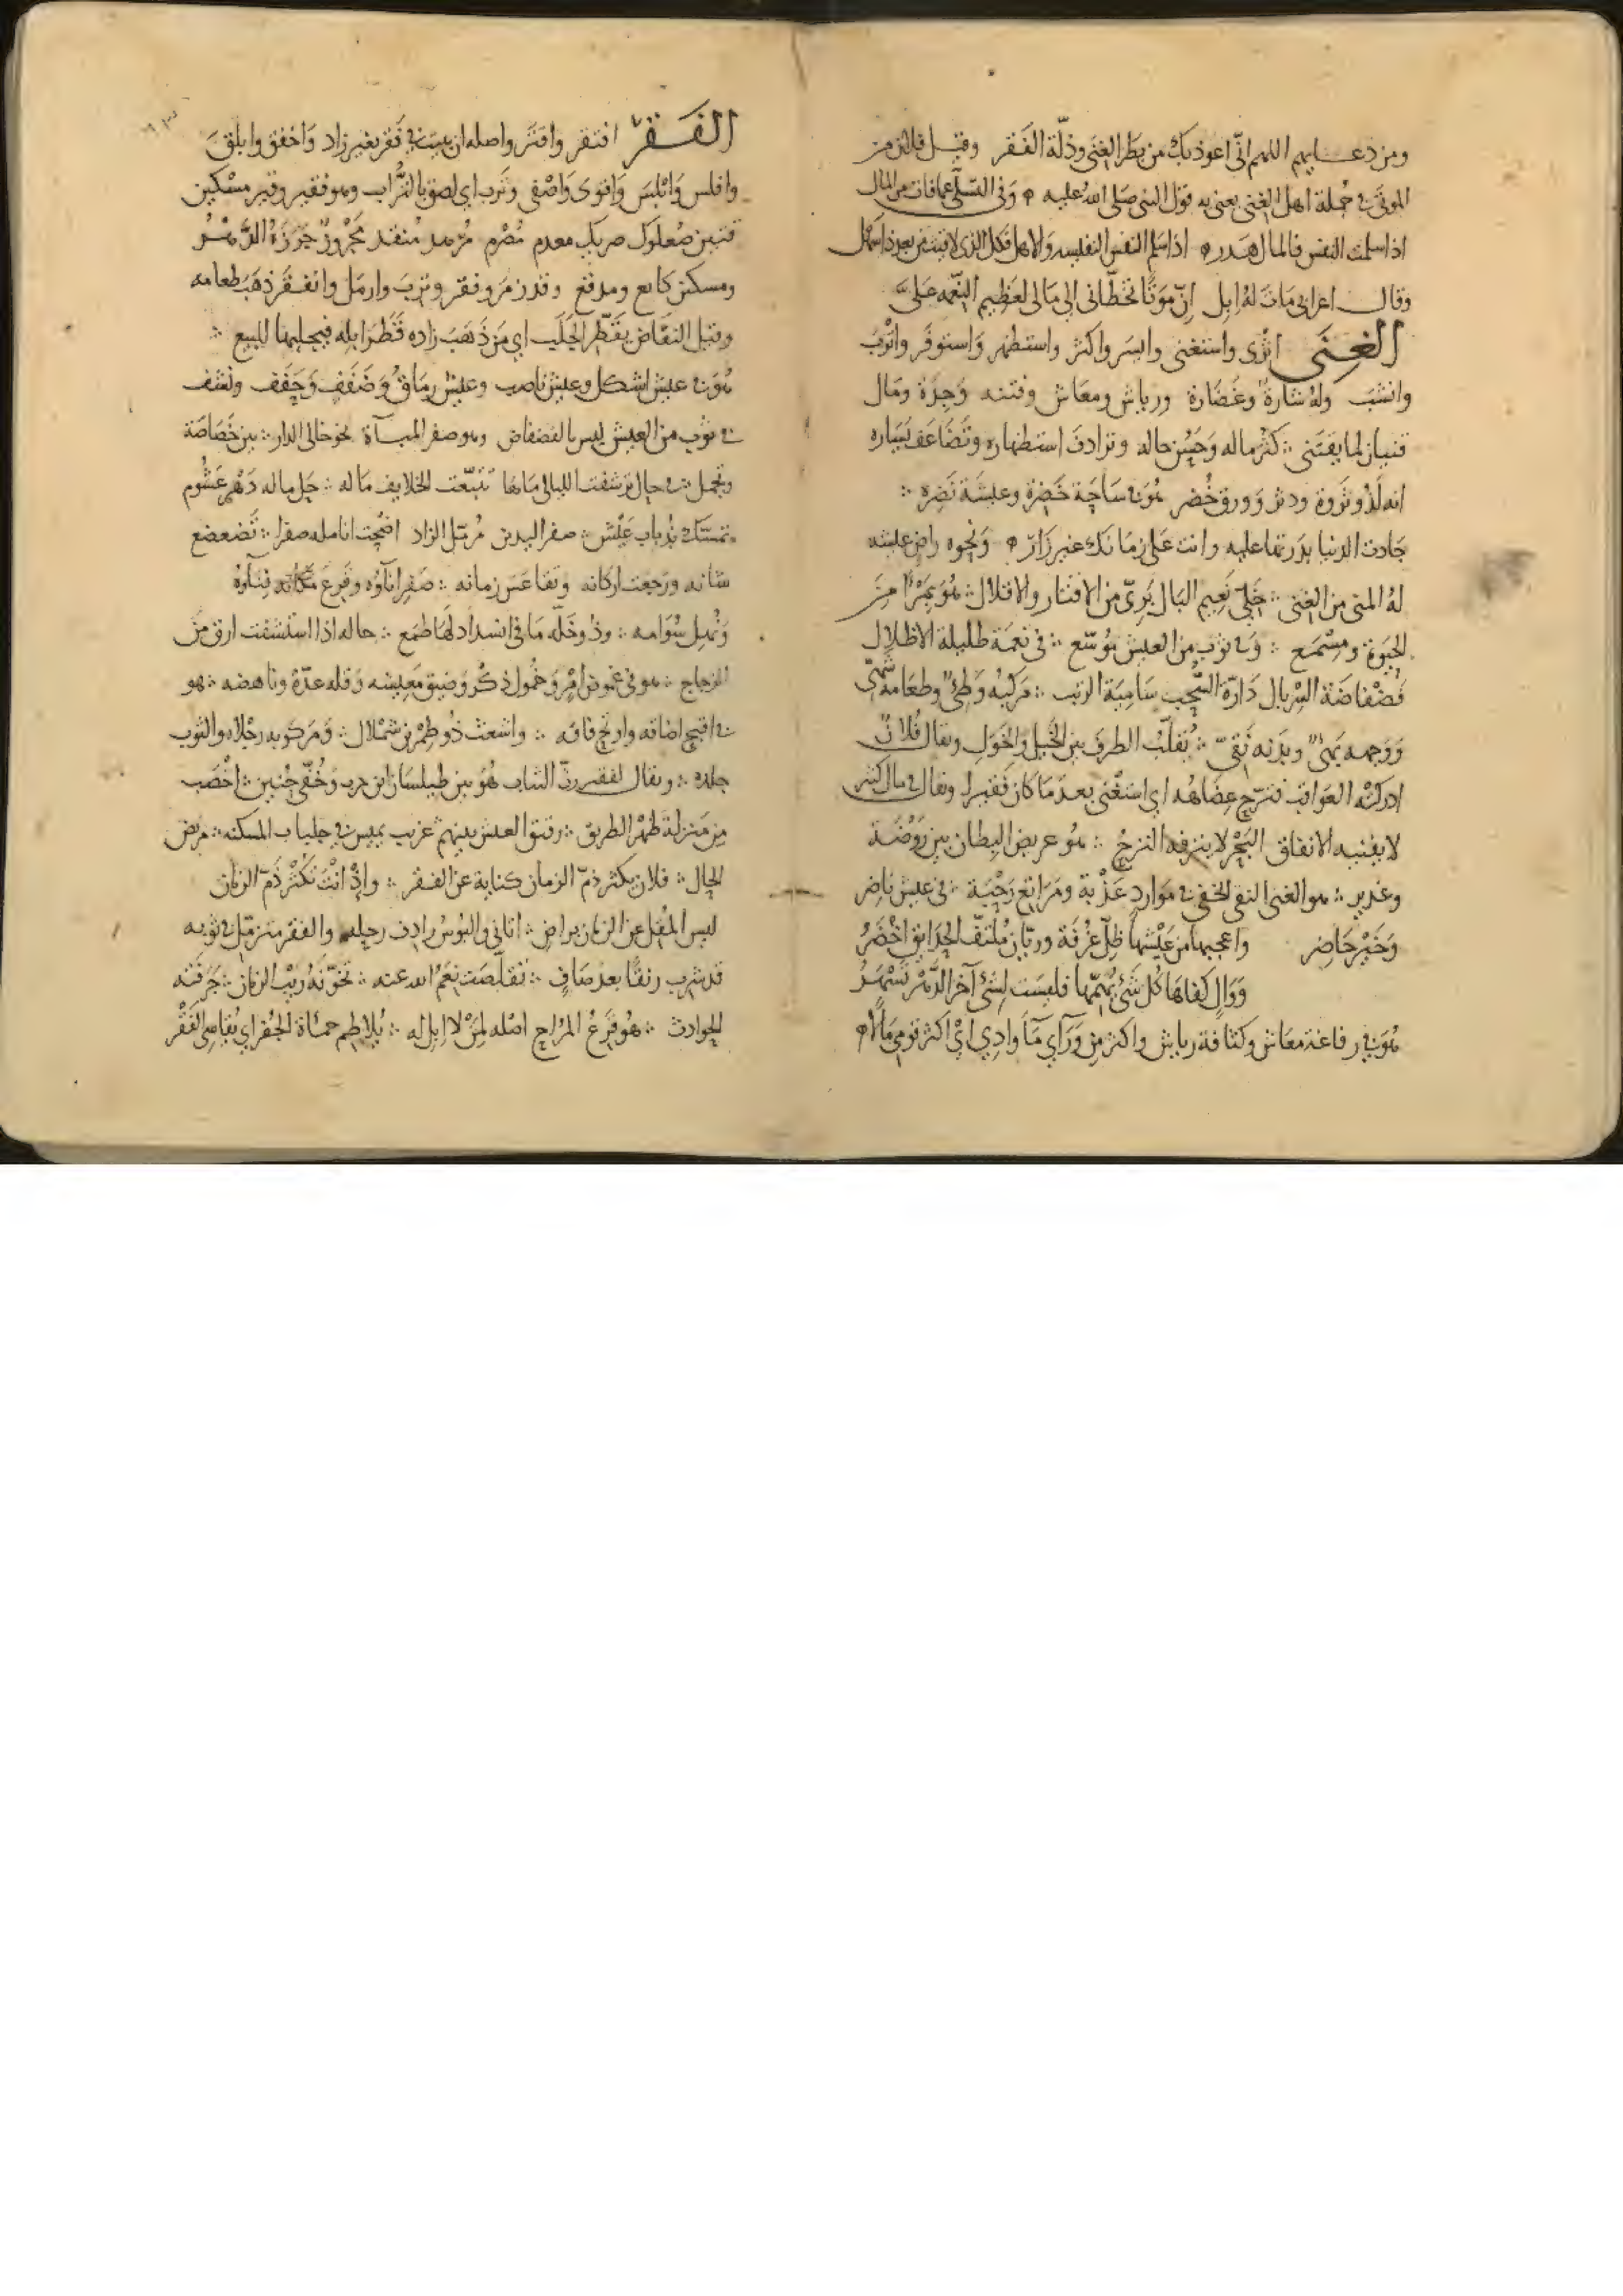 ومن دعايهم اللهم انّى اعوذ بك من بَطَر الغِنَى وذلّة الفَقر وقيل فلان من
في جُملة اهل الغِنى يعنى به قول النبى صَلى اللهُ عليه وَفى التسلّى عمافات من المال
اذا سلمت النفس فالمال هَدر اذا سَلِمَ النفس النفيسه وَالاهل فكل الذى بعد ذا سَهْل
وقال اعرابى مَاتَ لهُ اِبِل اِنّ مَوتًا تخَطّانى الى مَالى لعَظِيم النِّعمه عَلىَّ
الغِنَى اثرى واستغنى وايسَر واكثر واستظهر وَاستوفَر واترَبَ
وانشبَ ولهُ شارةٌ وغَضَارة ورياش ومعَاش وقنيه وَجِدَة ومَال
قنيان لما يقتنى كثر ماله وَحَسُن حاله وترادفَ استظهاره وتضَاعَف يَسَاره
انه لَذُو ثَروة ودثر وَورق خُضر هُوَ فى سَاحَة خَضِرة وعيشَة نَضِره
جَادت الدنيا بدَرتها عليه وانت عَلى زمَانك غير زَارٍ وَنحوه راضٍ عيشه
لهُ المنى من الغِنى خَلِىّ نَعِيم البَال بَرِىّ من الاقتار والاقلال هُوَ بمَرْأًى من
الحَيوة ومِسْمَع وَفى ثوب من العيش مُوَسّع فى نعمَة ظليلة الاظلال
فَضْفاضَة السِّربال دَارّة السُّحب سَامِيَة الرتب مَركبُه وَطِىٌ وطعَامه شَهِىّ
وَوَجهه بَهِىٌّ وبَدَنه نَقِىّ يُقلّبُ الطرفَ بين الخيل وَالخَوَل ويقال فُلانٌ
ادركتْه العَواقب عِضَاهُه اى استغنى بعد مَا كان فقيرا ويقال فى مال كثير
لا يفنيه الانفاق البَحْر لا ينزفه النزحُ هُو عريض البِطان بين رَوْضَة
وغدير هو الغنى التقى الخفى فى مَواردٍ عَذْبة ومَرَاتع رَحْبَة فى عيش نَاضِر
وَخَيْرٍ حَاضِر واعجبها من عَيْشها ظِلّ غُرْفة وريّان مُلتفّ الحَدَايق اخْضَرُ
وَوَالٍ كفاهَا كُل شَىْء يُهِمّها فليسَت لِشَىْء آخر الدَّهْر تَسْهَرُ
هُوَ فى رفاغة معَاش وكثافة رياش واكثر مِن وَرَآي مَآ وادِي اىْ اكثر قومى مَالًا
الفَقرُ افتقر وَاقترَ واصله ان يبيت فى قفر بغير زاد وَاخفق وابلق
وافلس وَابْلسَ وَاقوى وَاصْفى وتَرِب اى لصق بالتُّراب وهو فقير وقير مسْكين
صُعلوك ضريك معدم مُصْرِم مُزهد منفد مَجْروزٌ جَرَزَهُ الدَّهرُ
ومسكين كانع ومدقع وقد زمر وفقر وتربَ وارمَل وانفَقَ ذهَبَ طعامه
وقيل النفّاض يُقطّر الجَلَب اي مَن ذهَبَ زاده قَطَر ابله فيجلبها للبيع
هُوَ فى عيش اشكل وعيش ناصب وعيش رمَاقٍ وَضَفَفٍ وَحَفَف وشظف
فى ثوب من العيش ليس بالفضفاض وهو صفر المباءة نحو خالى الدار بين خَصَاصَة
وتجمل فى حال ترشفت الليالى مَاءهَا تتبّعت الخلايف مَاله حَلّ ماله دَهْر غَشُوم
يتمسّك بذناب عَيْش صفر اليدين مُرمّل الزاد اضْحت انامله صفرا تَضعضع
شانه ورَجفت اركانه وتقاعسَ زمانه صَفِر انآؤه وقَرِعَ فِنآؤه
وذو خَلّة مَا فى انسداد لهَا طمَع حاله اذا استشفت ارق من
الزجاج هو فى غموض امْرٍ وَخُمول ذكْر وضيق مَعِيشه وَقله عدّة وناهضه هو
فى اقبح اضاقه واوتح فاقه واشعث ذُو طِمْرين شملال وَمَركوبه رجْلاه والثوب
جلده ويقال لفقير رث الثياب هُوَ بين طيلسَان ابن حرب وَخُفّى حُنين اخْصَب
مِن مَنزلة ظَهْرُ الطريق رقيق العيش بينهم غريب يميس فى جلباب المسكنه مريض
الحَال فلان يكثر ذمّ الزمان كناية عن الفقر وانْ انْتَ تكثرْ ذَمّ الزمان
ليس المُقِل عن الزمان براضٍ اتانى والبُوسُ رادِف رحله والفقر متزمّل فى ثوبه
قد شرب رنقًا بعد صَافٍ تقلّصَت نعَمُ الله عنه تخوّنَهُ رَيْبُ الزمان جَرفَته
الحوادث هُو قَرِعُ المُراح اصْله لمَن لا اِبِل له يُلاطِم حمأة الجُفر اي يُقاسِى الفَقْر